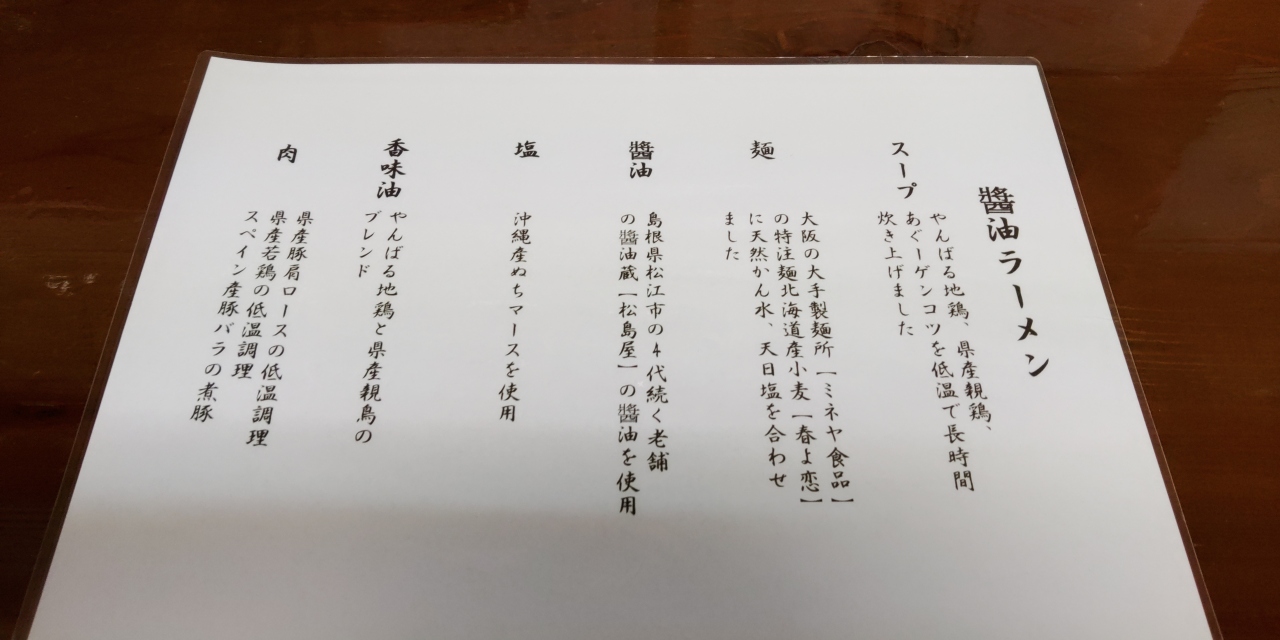 醬油ラーメン
スープ
やんばる地鶏、県産親鶏、
あぐーゲンコツを低温で長時間
炊き上げました
麺
大阪の大手製麺所【ミネヤ食品】
の特注麺北海道産小麦【春よ恋】
に天然かん水、天日塩を合わせ
ました
醬油
島根県松江市の4代続く老舗
の醬油蔵【松島屋】の醬油を使用
塩
沖縄産ぬちマースを使用
香味油
やんばる地鶏と県産親鳥の
ブレンド
肉
県産豚肩ロースの低温調理
県産若鶏の低温調理
スペイン産豚バラの煮豚